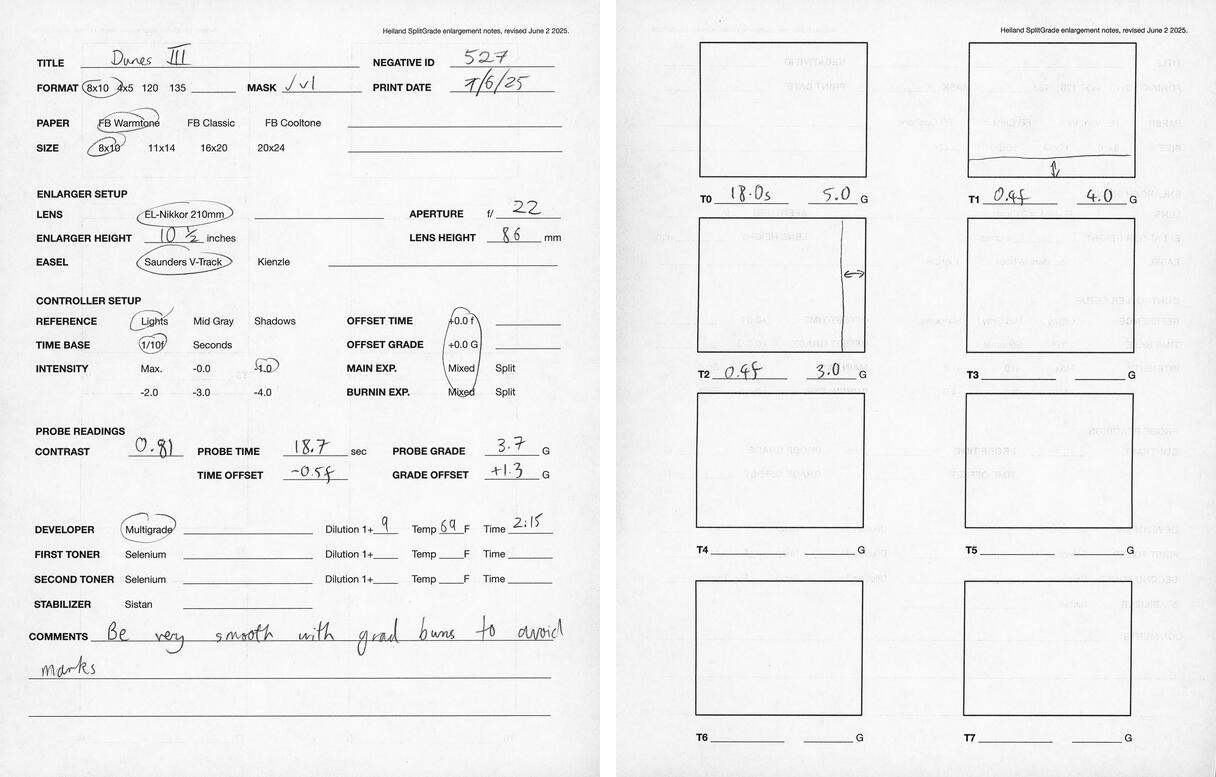 Heiland SplitGrade enlargement notes, revised June 2 2025.
TITLE Dunes III NEGATIVE ID 527
FORMAT 8x10 4x5 120 135 MASK PRINT DATE 7/6/25
PAPER FB Warmtone FB Classic FB Cooltone
SIZE 8x10 11x14 16x20 20x24
ENLARGER SETUP
LENS EL-Nikkor 210mm APERTURE f/ 22
ENLARGER HEIGHT 10 ½ inches LENS HEIGHT 86 mm
EASEL Saunders V-Track Kienzle
CONTROLLER SETUP
REFERENCE Lights Mid Gray Shadows OFFSET TIME +0.0 f
TIME BASE 1/10f Seconds OFFSET GRADE +0.0 G
INTENSITY Max. -0.0 -1.0 MAIN EXP. Mixed Split
-2.0 -3.0 -4.0 BURNIN EXP. Mixed Split
PROBE READINGS
CONTRAST 0.81 PROBE TIME 18.7 sec PROBE GRADE 3.7 G
TIME OFFSET -0.5f GRADE OFFSET +1.3 G
DEVELOPER Multigrade Dilution 1+ 9 Temp 69 F Time 2:15
FIRST TONER Selenium Dilution 1+ Temp F Time
SECOND TONER Selenium Dilution 1+ Temp F Time
STABILIZER Sistan
COMMENTS Be very smooth with grad burns to avoid
marks
Heiland SplitGrade enlargement notes, revised June 2 2025.
T0 18.0s 5.0 G T1 0.4f 4.0 G
T2 0.4f 3.0 G T3 G
T4 G T5 G
T6 G T7 G